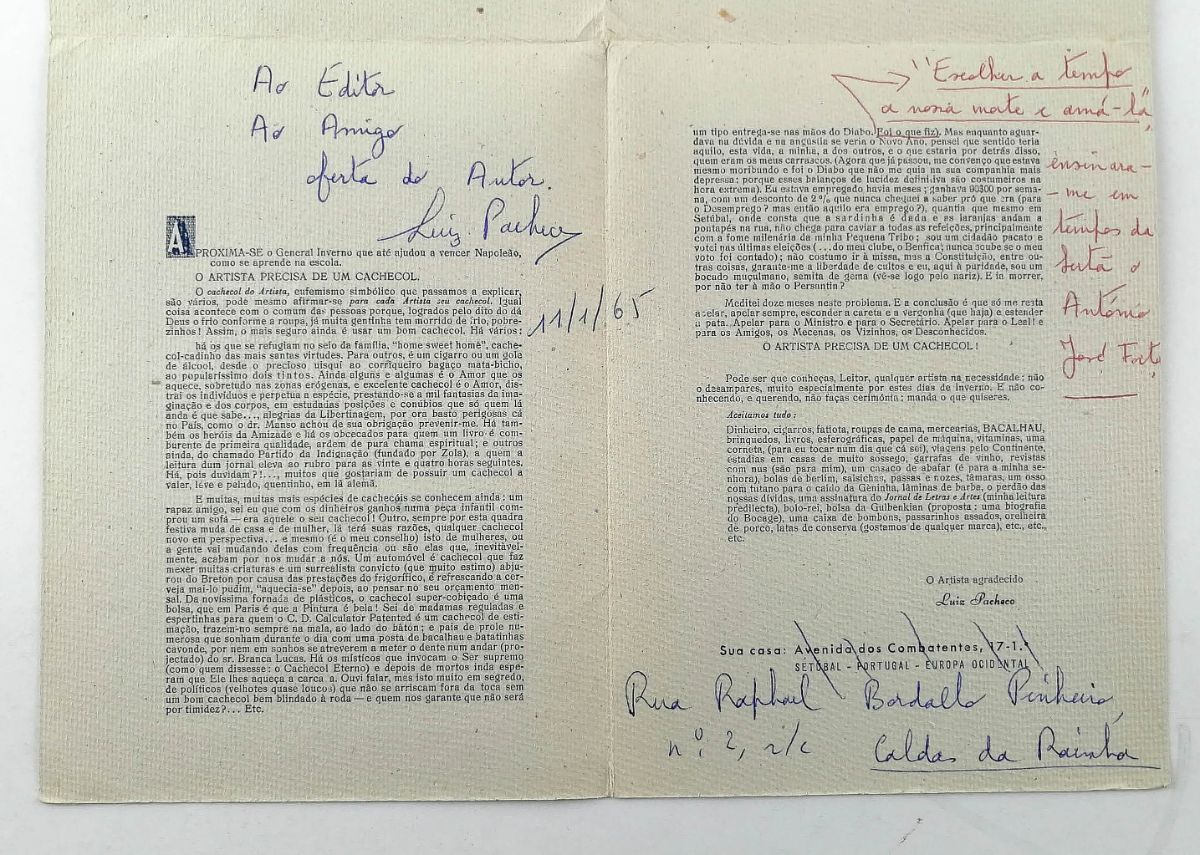 Ao Editor
Ao Amigo
oferta do Autor.
Luiz Pacheco
11/1/65
APROXIMA-SE o General Inverno que até ajudou a vencer Napoleão,
como se aprende na escola.
O ARTISTA PRECISA DE UM CACHECOL.
O cachecol do Artista, eufemismo simbólico que passamos a explicar,
são vários, pode mesmo afirmar-se para cada Artista seu cachecol. Igual
coisa acontece com o comum das pessoas porque, logrados pelo dito do dá
Deus o frio conforme a roupa, já muita gentinha tem morrido de frio, pobre-
zinhos! Assim, o mais seguro ainda é usar um bom cachecol. Há vários:
há os que se refugiam no seio da família, "home sweet home", cache-
col-cadinho das mais santas virtudes. Para outros, é um cigarro ou um gole
de álcool, desde o precioso uísqui ao corriqueiro bagaço mata-bicho,
ao popularíssimo dois tintos. Ainda alguns e algumas é o Amor que os
aquece, sobretudo nas zonas erógenas, e excelente cachecol é o Amor, dis-
trai os indivíduos e perpetua a espécie, prestando-se a mil fantasias da ima-
ginação e dos corpos, em estudadas posições e conúbios que só quem lá
anda é que sabe..., alegrias da Libertinagem, por ora basto perigosas cá
no País, como o dr. Manso achou de sua obrigação prevenir-me. Há tam-
bém os heróis da Amizade e há os obcecados para quem um livro é com-
burente de primeira qualidade, ardem de pura chama espiritual; e outros
ainda, do chamado Partido da Indignação (fundado por Zola), a quem a
leitura dum jornal eleva ao rubro para as vinte e quatro horas seguintes.
Há, pois duvidam?!..., muitos que gostariam de possuir um cachecol a
valer, leve e peludo, quentinho, em lã alemã.
E muitas, muitas mais espécies de cachecóis se conhecem ainda: um
rapaz amigo, sei eu que com os dinheiros ganhos numa peça infantil com-
prou um sofá — era aquele o seu cachecol! Outro, sempre por esta quadra
festiva muda de casa e de mulher, lá terá suas razões, qualquer cachecol
novo em perspectiva... e mesmo (é o meu conselho) isto de mulheres, ou
a gente vai mudando delas com frequência ou são elas que, inevitàvel-
mente, acabam por nos mudar a nós. Um automóvel é cachecol que faz
mexer muitas criaturas e um surrealista convicto (que muito estimo) abju-
rou do Breton por causa das prestações do frigorífico, e refrescando a cer-
veja mai-lo pudim, "aquecia-se" depois, ao pensar no seu orçamento men-
sal. Da novíssima fornada de plásticos, o cachecol super-cobiçado é uma
bolsa, que em Paris é que a Pintura é bela! Sei de madamas reguladas e
espertinhas para quem o C. D. Calculator Patented é um cachecol de esti-
mação, trazem-no sempre na mala, ao lado do bâton; e pais de prole nu-
merosa que sonham durante o dia com uma posta de bacalhau e batatinhas
cavonde, por nem em sonhos se atreverem a meter o dente num andar (pro-
jectado) do sr. Branca Lucas. Há os místicos que invocam o Ser supremo
(como quem dissesse: o Cachecol Eterno) e depois de mortos inda espe-
ram que Ele lhes aqueça a carcaça. Ouvi falar, mas isto muito em segredo,
de políticos (velhotes quase loucos) que não se arriscam fora da toca sem
um bom cachecol bem blindado à roda — e quem nos garante que não será
por timidez?... Etc.
"Escolher a tempo
a nossa morte e amá-la",
ensinara-
-me em
tempos da
o
António
José Forte
um tipo entrega-se nas mãos do Diabo. Foi o que fiz). Mas enquanto aguar-
dava na dúvida e na angústia se veria o Novo Ano, pensei que sentido teria
aquilo, esta vida, a minha, a dos outros, e o que estaria por detrás disso,
quem eram os meus carrascos. (Agora que já passou, me convenço que estava
mesmo moribundo e foi o Diabo que não me quis na sua companhia mais
depressa: porque esses balanços de lucidez definitiva são costumeiros na
hora extrema). Eu estava empregado havia meses; ganhava 90$00 por sema-
na, com um desconto de 2% que nunca cheguei a saber pró que era (para
o Desemprego? mas então aquilo era emprego?), quantia que mesmo em
Setúbal, onde consta que a sardinha é dada e as laranjas andam a
pontapés na rua, não chega para caviar a todas as refeições, principalmente
com a fome milenária da minha Pequena Tribo; sou um cidadão pacato e
votei nas últimas eleições (...do meu clube, o Benfica; nunca soube se o meu
voto foi contado); não costumo ir à missa, mas a Constituição, entre ou-
tras coisas, garante-me a liberdade de cultos e eu, aqui à puridade, sou um
bocado muçulmano, semita de gema (vê-se logo pelo nariz). E ia morrer,
por não ter à mão o Persantin?
Meditei doze meses neste problema. E a conclusão é que só me resta
apelar, apelar sempre, esconder a careta e a vergonha (que haja) e estender
a pata. Apelar para o Ministro e para o Secretário. Apelar para o Leal! e
para os Amigos, os Mecenas, os Vizinhos, os Desconhecidos.
O ARTISTA PRECISA DE UM CACHECOL!
Pode ser que conheças, Leitor, qualquer artista na necessidade: não
o desampares, muito especialmente por estes dias de inverno. E não co-
nhecendo, e querendo, não faças cerimónia: manda o que quiseres.
Aceitamos tudo:
Dinheiro, cigarros, fatiota, roupas de cama, mercearias, BACALHAU,
brinquedos, livros, esferográficas, papel de máquina, vitaminas, uma
corneta, (para eu tocar num dia que cá sei), viagens pelo Continente,
estadias em casas de muito sossego, garrafas de vinho, revistas
com nus (são para mim), um casaco de abafar (é para a minha se-
nhora), bolas de berlim, salsichas, passas e nozes, tâmaras, um osso
com tutano para o caldo da Geninha, lâminas de barba, o perdão das
nossas dívidas, uma assinatura do Jornal de Letras e Artes (minha leitura
predilecta), bolo-rei, bolsa da Gulbenkian (proposta: uma biografia
do Bocage), uma caixa de bombons, passarinhos assados, orelheira
de porco, latas de conserva (gostamos de qualquer marca), etc., etc.,
etc.
O Artista agradecido
Luiz Pacheco
Sua casa: Avenida dos Combatentes, 17-1.º
SETÚBAL - PORTUGAL - EUROPA OCIDENTAL
Rua Raphael Bordallo Pinheiro,
nº. 2, r/c
Caldas da Rainha